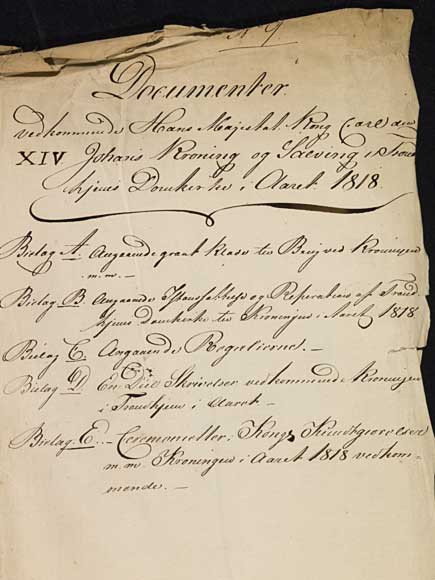 N 9
Documenter.
vedkommende Hans Majestæt Kong Carl den
XIV Johans Kroning og Salving i Trond
hjems Domkirke i Aaret 1818.
Bielag A. Angaaende graat Klæde til Brug ved Kroningen
m.m. —
Bielag B. Angaaende Istandsættelse og Reparation af Trond
hjems Domkirke til Kroningen i Aaret 1818
Bielag C. Angaaende Regalierne. —
Bielag D. En Deel Skrivelser vedkommende Kroningen
i Trondhjem i Aaret —
Bielag. E. — Ceremonieller, Kongl. Kundgiørelser
m.m. Kroningen i Aaret 1818 vedkom-
mende. —